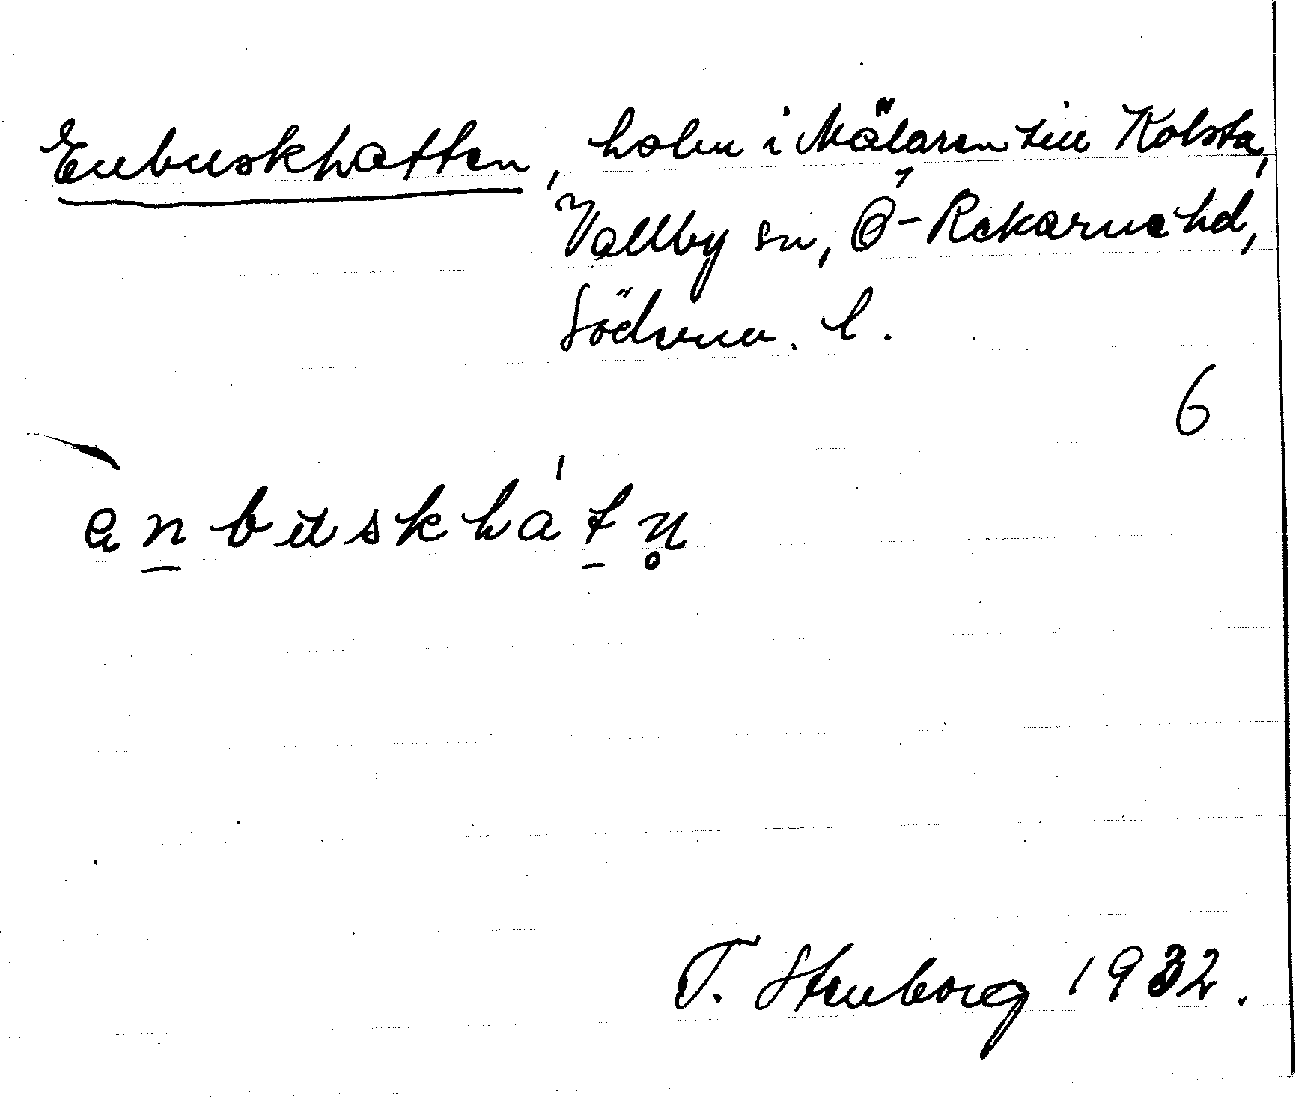 Enbuskhatten, holm i Mälaren till Kolsta,
Vallby sn, Ö-Rekarne hd,
Söderm. l.
6
enbuskhát̲n̥
T. Stenborg 1932.